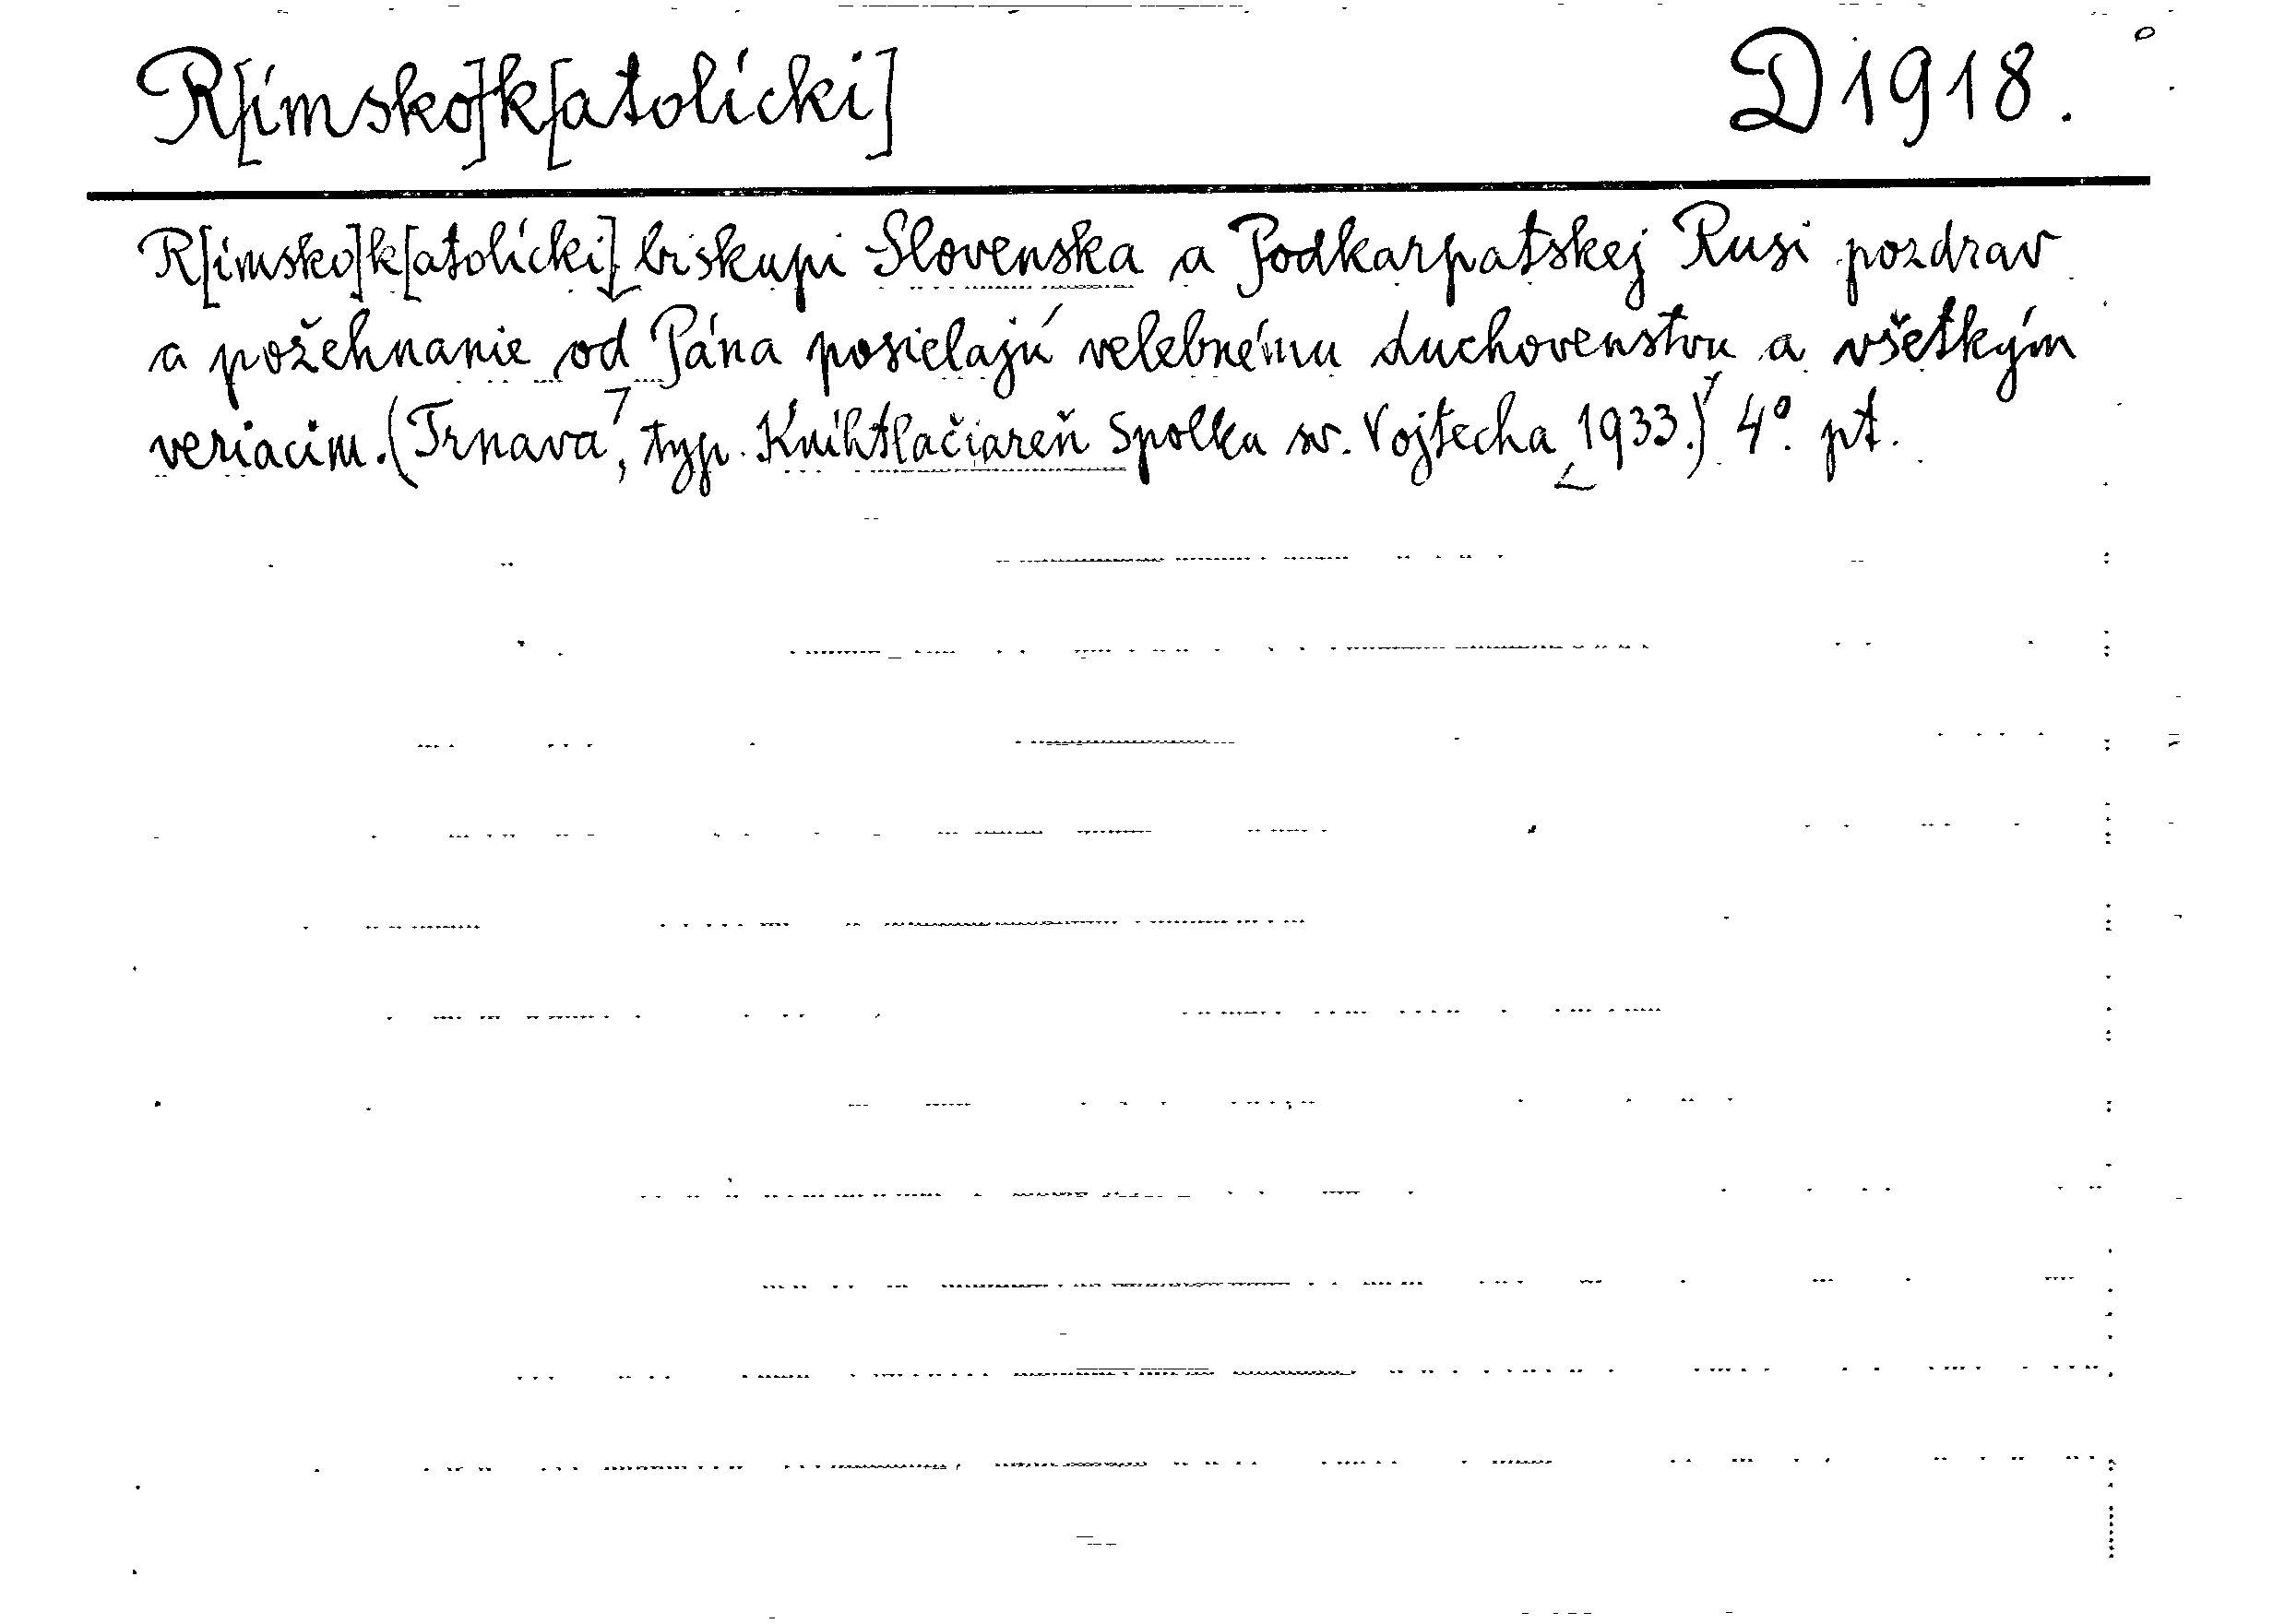 R[imsko]k[atolícki] D 1918.
R[imsko]k[atolícki] biskupi Slovenska a Podkarpatskej Rusi pozdrav
a požehnanie od Pána posielajú velebnému duchovenstvu a všetkým
veriacim. (Trnava, typ. Kníhtlačiareň Spolku sv. Vojtecha 1933.) 4°. pt.